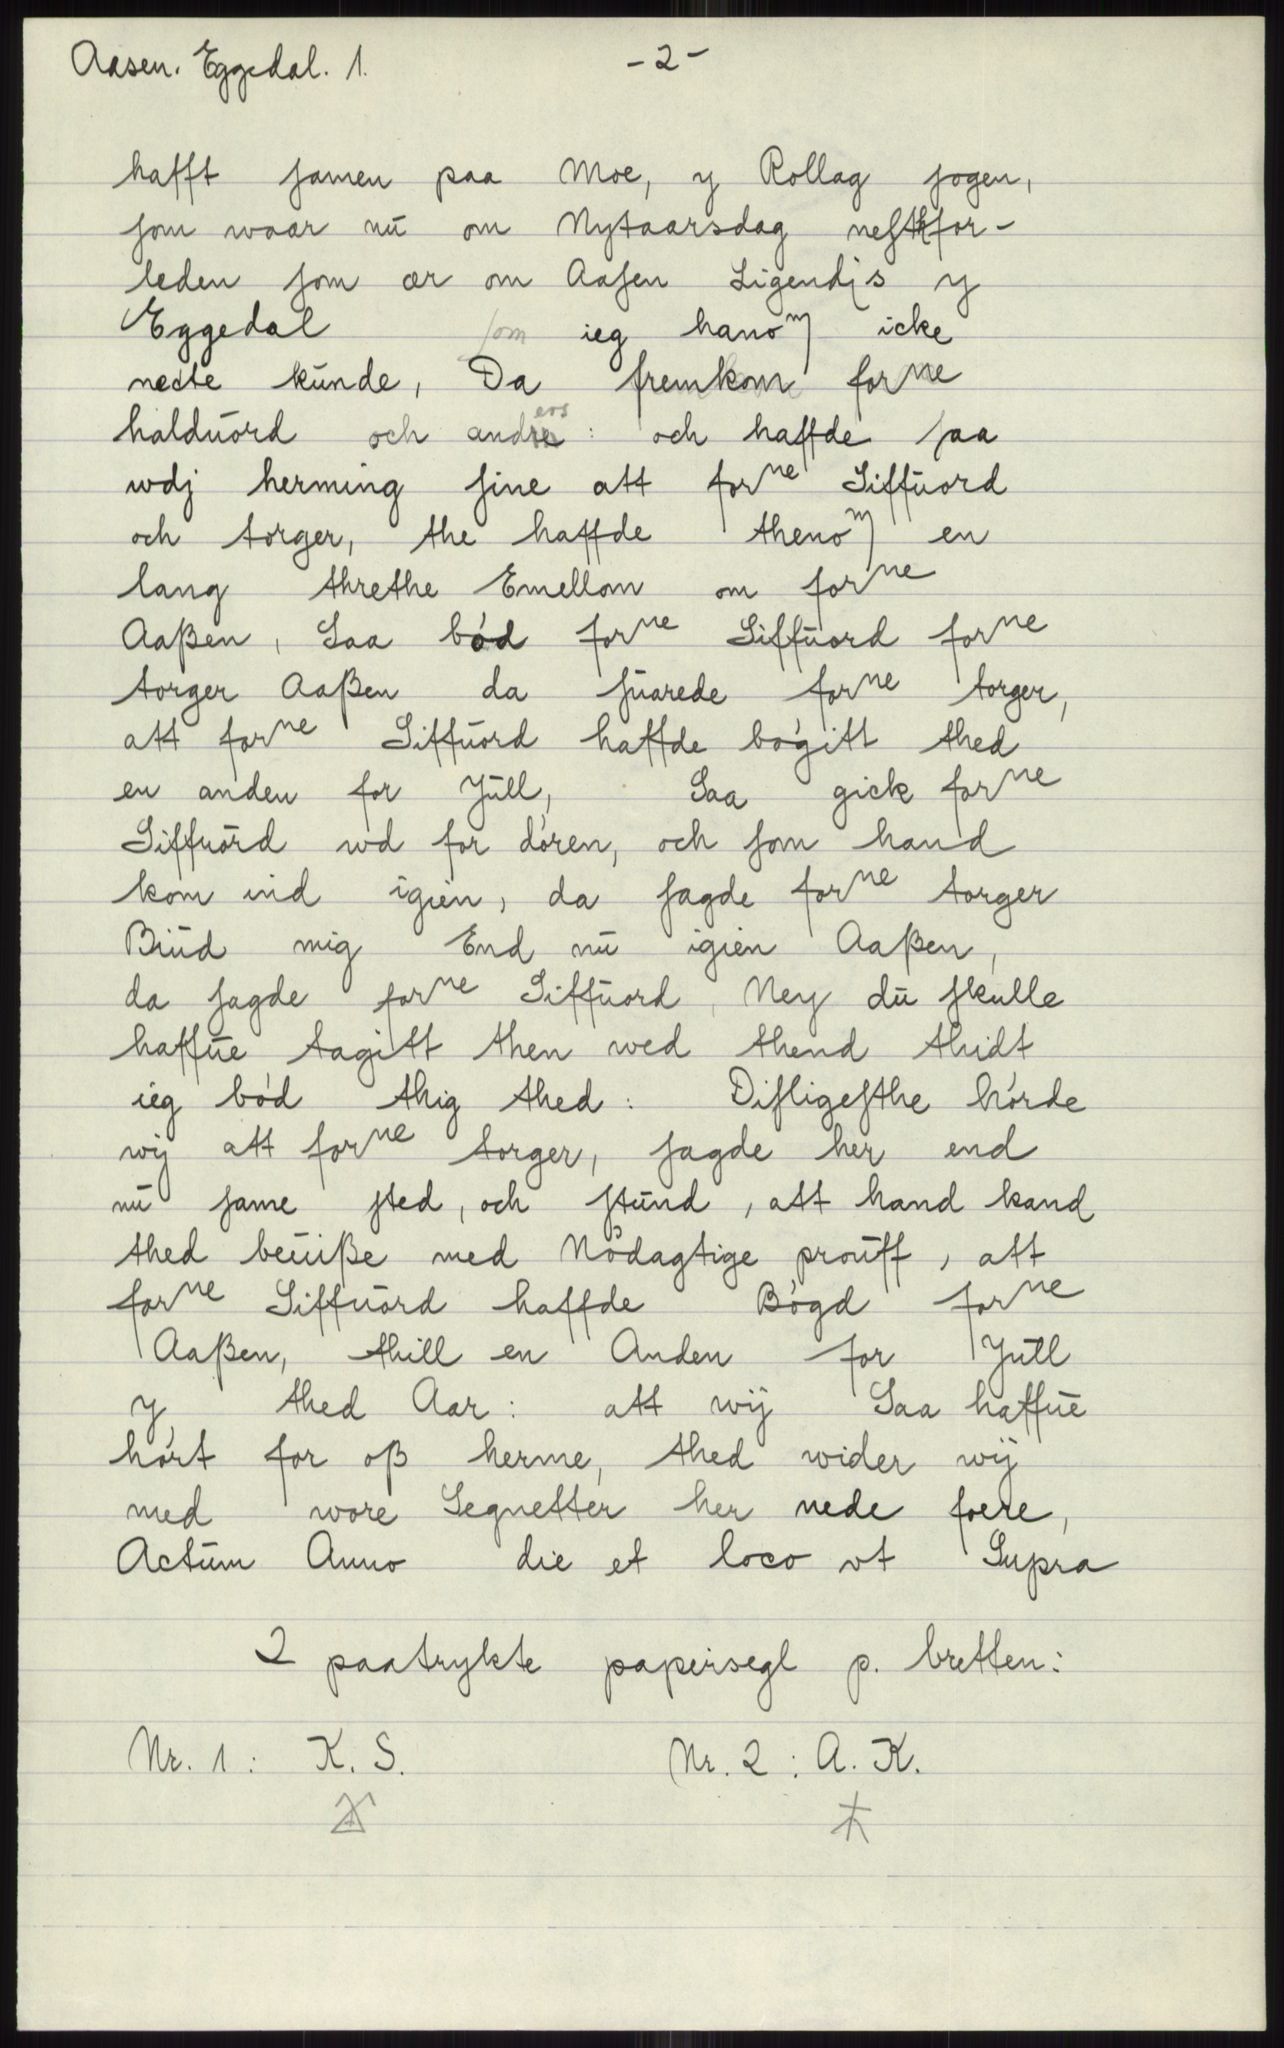 Aasen. Eggedal. 1. -2-
hafft samen paa Moe, y Rollag sogen,
som waar nū om Nytaarsdag nestfor-
leden som ær om Aasen Ligendis y
Eggedal som ieg hanoᵐ icke
necte kūnde, Da fremkom forⁿᵉ
halduōrd och anders: och haffde saa
wdj herming sine att forⁿᵉ Siffūord
och torger, the haffde thenoᵐ en
lang threthe Emellom om forⁿᵉ
Aaßen, Saa bód forⁿᵉ Siffūord forⁿᵉ
torger Aaßen da sūarede forⁿᵉ torger,
att forⁿᵉ Siffūord haffde bógitt thed
en anden for Jūll, Saa gick forⁿᵉ
Siffūord wd for dóren, och som hand
kom ind igien, da sagde forⁿᵉ torger
Biūd mig End nū igien Aaßen,
da sagde forⁿᵉ Siffūord, Ney dū skulle
haffūe tagitt then wed thend thidt
ieg bód thig thed: Disligesthe hórde
wij att forⁿᵉ torger, sagde her end
nū same sted, och stūnd, att hand kand
thed beūiße med Nódagtige proūff, att
forⁿᵉ Siffūord haffde Bógd forⁿᵉ
Aaßen, thill en Anden for Jūll
y thed Aar: att wij Saa haffūe
hórt for oß herme, thed wider wij
med wore Segnetter her nede foere,
Actūm Anno die et loco vt Supra
2 paatrykte papirsegl p. bretten:
Nr. 1: K. S. Nr. 2: A. K.